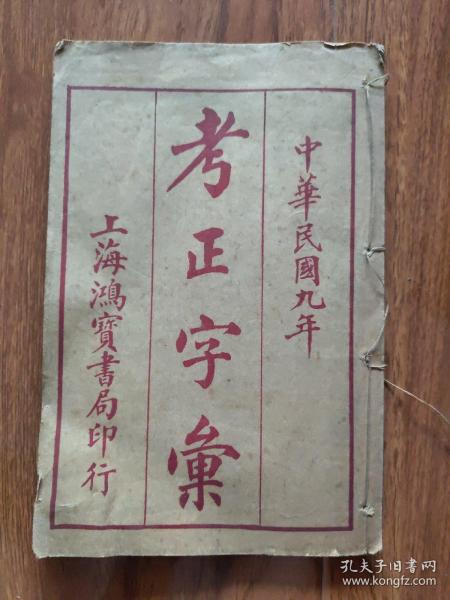 中華民國九年
考正字彙
上海鴻寶書局印行
孔夫子旧书网
www.kongfz.com